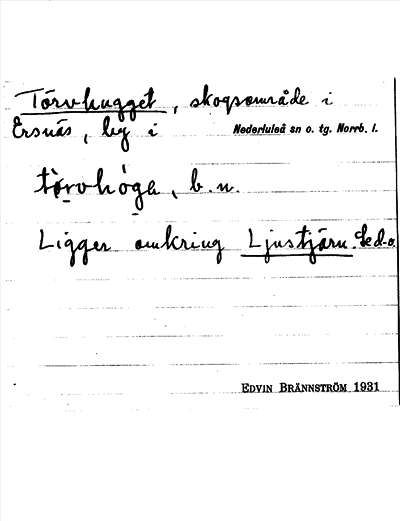 Törvhugget, skogsområde i
Ersnäs, by i Nederluleå sn o. tg. Norrb. l.
tö̀rvhóga, b. n.
Ligger omkring Ljustjärn. Se d. o.
EDVIN BRÄNNSTRÖM 1931